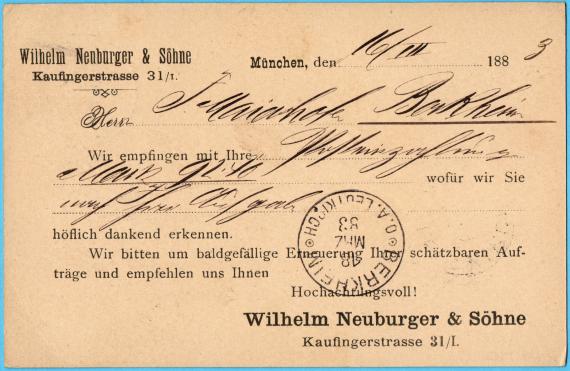 Wilhelm Neuburger & Söhne
Kaufingerstrasse 31/I.
München, den 16/III 1883
Herrn J. Maierhofer Berkheim
Wir empfingen mit Ihre Posteinzahlung
Mark wofür wir Sie
nach Ihrer Aufgabe
höflich dankend erkennen.
Wir bitten um baldgefällige Erneuerung Ihrer schätzbaren Auf-
träge und empfehlen uns Ihnen
Hochachtungsvoll!
Wilhelm Neuburger & Söhne
Kaufingerstrasse 31/I.
BERKHEIM
O.A. LEUTKIRCH
18
MRZ
83